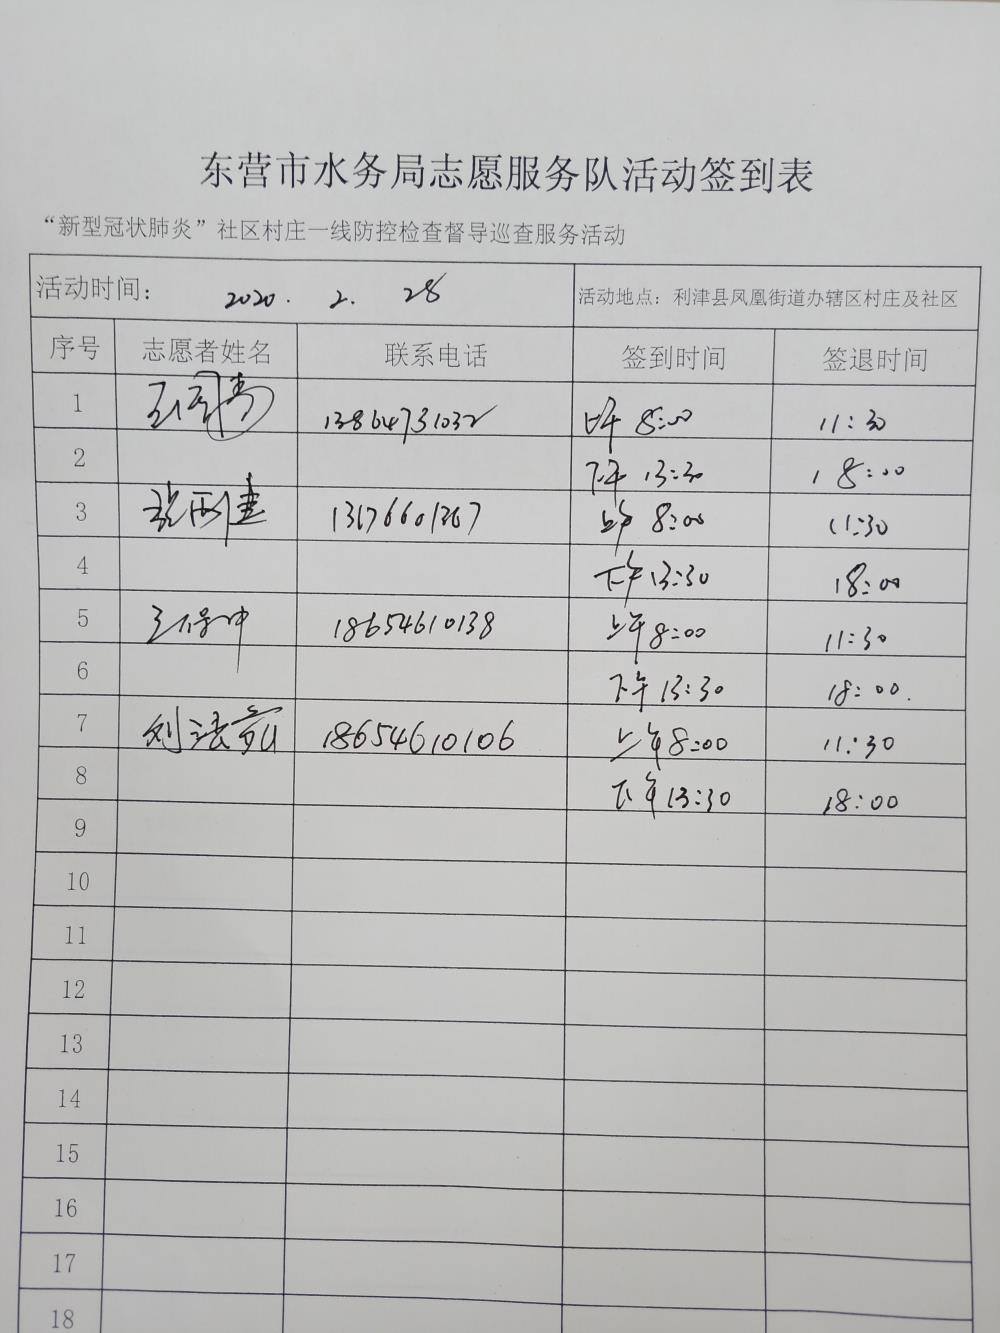 东营市水务局志愿服务队活动签到表
“新型冠状肺炎”社区村庄一线防控检查督导巡查服务活动
活动时间： 2020. 2. 28 活动地点：利津县凤凰街道办辖区村庄及社区
序号 志愿者姓名 联系电话 签到时间 签退时间
1 13864731032 上午 8:00 11:30
2 下午 13:30 18:00
3 13176601367 上午 8:00 11:30
4 下午 13:30 18:00
5 18654610138 上午 8:00 11:30
6 下午 13:30 18:00.
7 刘法 18654610106 上午 8:00 11:30
8 下午 13:30 18:00
9
10
11
12
13
14
15
16
17
18